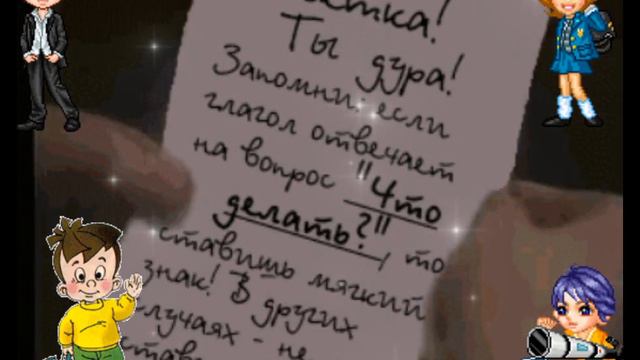 Ты дура!
Запомни: если
глагол отвечает
на вопрос "Что
делать?", то
ставишь мягкий
знак! В других
случаях - не